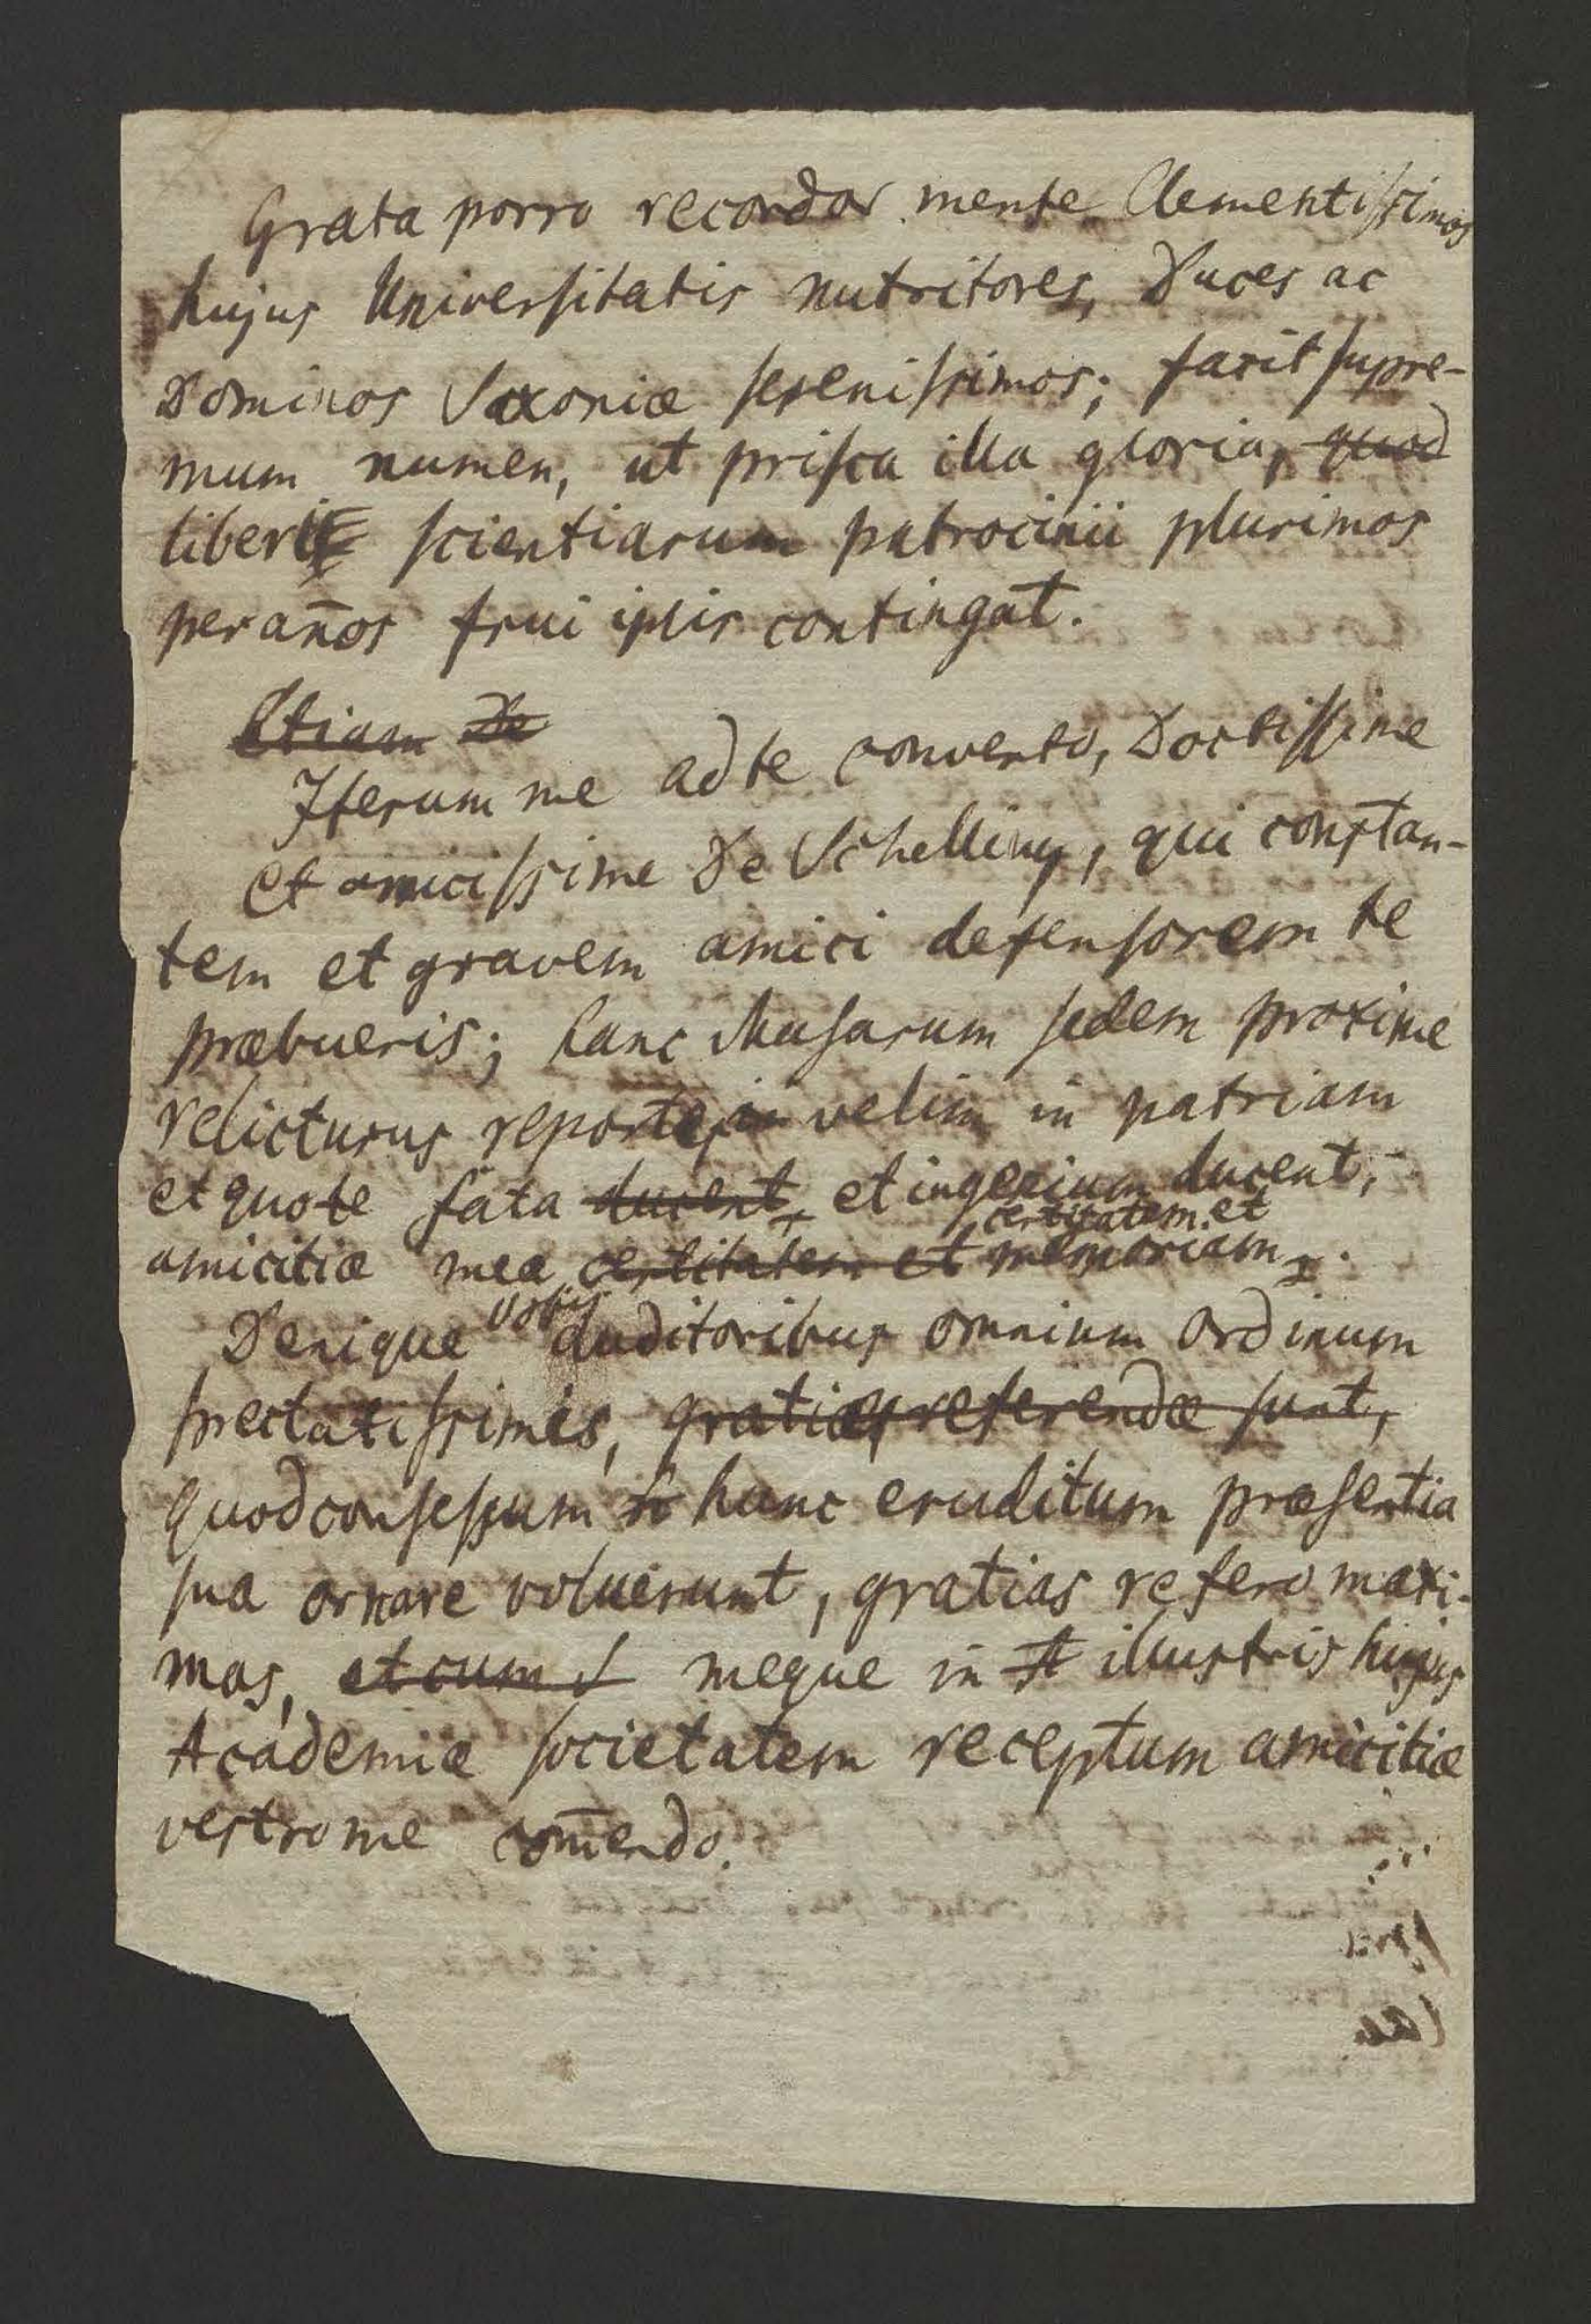 Grata porro recordor mente Clementissimos
hujus Universitatis nutritores, Duces ac
Dominos Saxoniæ serenissimos; faxit supre-
mum numen, ut prisca illa gloria, quod
liberi scientiarum patrocinii plurimos
per an̄os frui ipsis contingat.
Etiam De
Iterum me ad te converto, Doctissime
et amicissime De Schelling, qui constan-
tem et gravem amici defensorem te
præbueris; hanc Musarum sedem proxime
relicturus reportes velim in patriam
et quo te fata ducent, et ingenium ducent,
certitatem et
amicitiæ meæ certitatem et memoriam.
Vobis
Denique auditoribus omnium ordinum
spectatissimis, gratiæ referendæ sunt,
quod consessum hunc eruditum præsentia
sua ornare voluerunt, gratias refero maxi-
mas, et cum meque in illustris hujus
Academiæ societatem receptum amicitiæ
vestro me com̄endo.